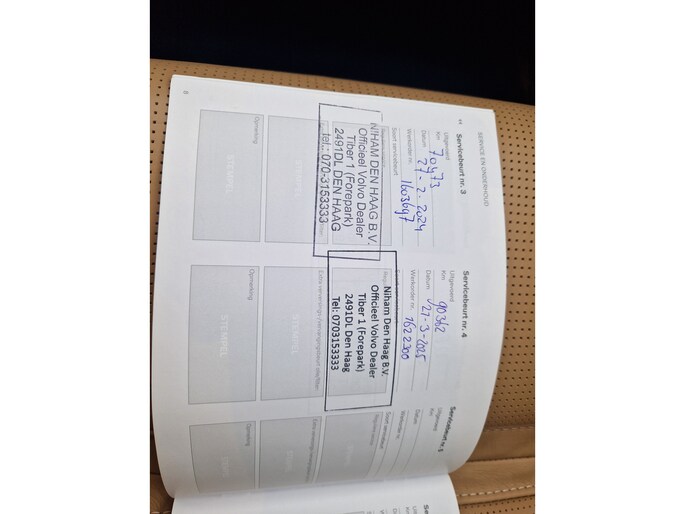 SERVICE EN ONDERHOUD
Servicebeurt nr. 3
Uitgevoerd
Km 70473
Datum 27-2-2024
Werkorder nr. 1603697
Soort servicebeurt
NIHAM DEN HAAG B.V.
Officieel Volvo Dealer
Tiber 1 (Forepark)
2491DL DEN HAAG
tel.: 070-3153333
STEMPEL
Opmerking
STEMPEL
Servicebeurt nr. 4
Uitgevoerd
Km 90362
Datum 27-3-2025
Werkorder nr. 1622300
Niham Den Haag B.V.
Officieel Volvo Dealer
Tiber 1 (Forepark)
2491DL Den Haag
Tel: 0703153333
STEMPEL
Opmerking
STEMPEL
Servicebeurt nr. 5
Uitgevoerd
Km
Datum
Werkorder nr.
Soort servicebeurt
Opmerking
8